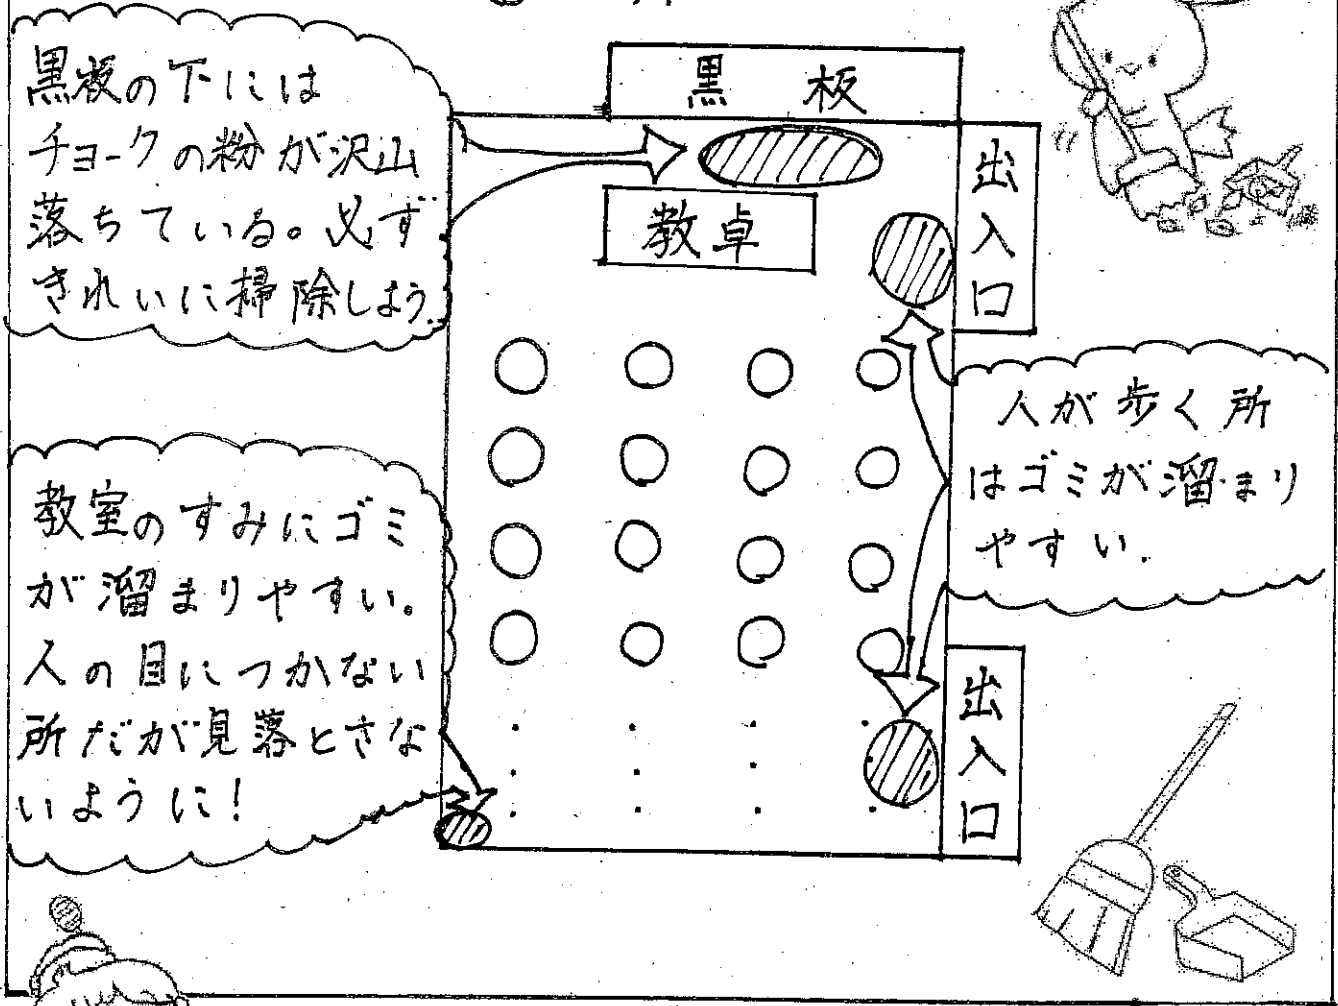 黒板の下には
チョークの粉が沢山
落ちている。必ず
きれいに掃除しよう
黒板
教卓
出入口
人が歩く所
はゴミが溜まり
やすい.
教室のすみにゴミ
が溜まりやすい。
人の目につかない
所だが見落とさな
いように!
出入口